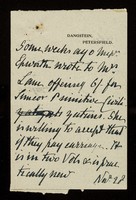 DANGSTEIN,
PETERSFIELD.
Some weeks ago Messrs
wrote to Mr
Lane offering 6/ for
Simcox Primitive Civili
zations. She
is willing to accept that
if they pay carriage. It
is in two Vols & is prac
tically new
Nov 28